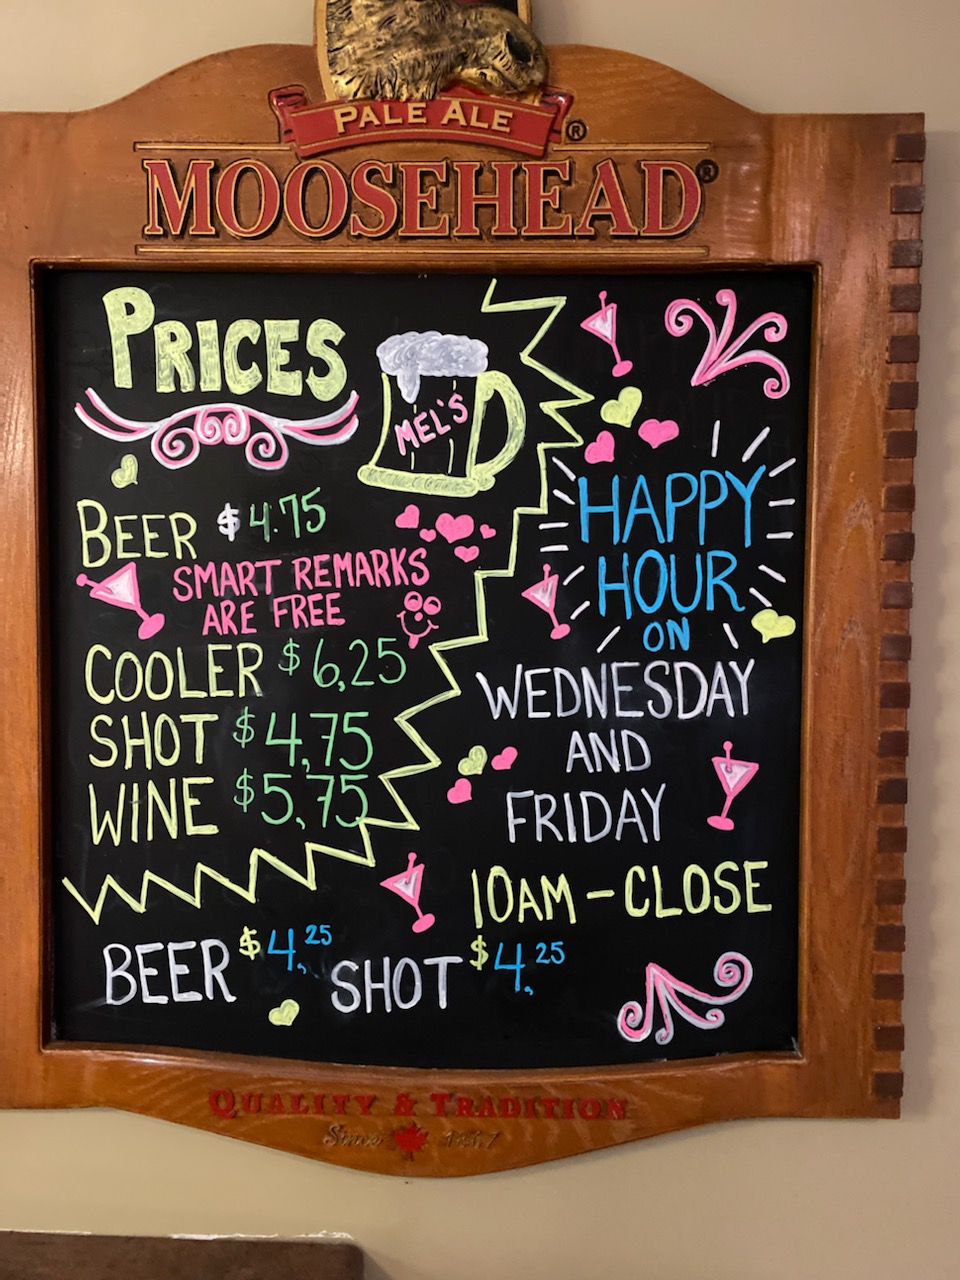 PALE ALE ®
MOOSEHEAD®
PRICES
MEL'S
BEER $4.75
SMART REMARKS
ARE FREE
COOLER $6,25
SHOT $4,75
WINE $5,75
HAPPY
HOUR
ON
WEDNESDAY
AND
FRIDAY
10AM - CLOSE
BEER $4.25 SHOT $4.25
QUALITY & TRADITION
Since 1867